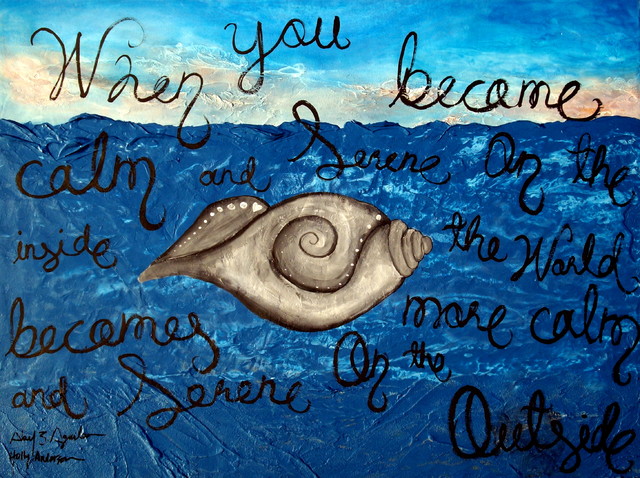 When you become
calm and Serene On the
inside the World
becomes more calm
and Serene On the
Outside
Holly Anderson